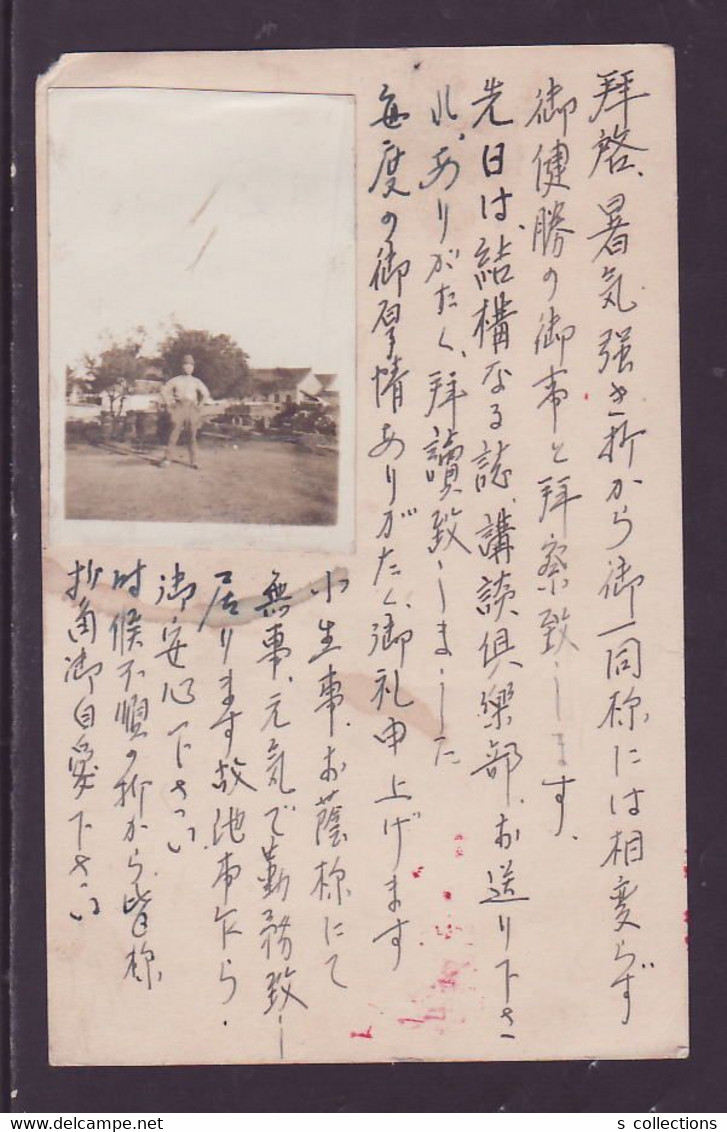 拝啓、暑気強き折から御一同様には相変らず
御健勝の御事と拝察致します。
先日は、結構なる誌、講談倶楽部、お送り下さ
れ、ありがたく、拝讀致しました
毎度の御厚情ありがたく、御礼申上げます
小生事、お蔭様にて
無事、元気で勤務致し
居ります故他事乍ら、
御安心下さい
時候不順の折から皆様
折角御自愛下さい
s collections
akpool.com